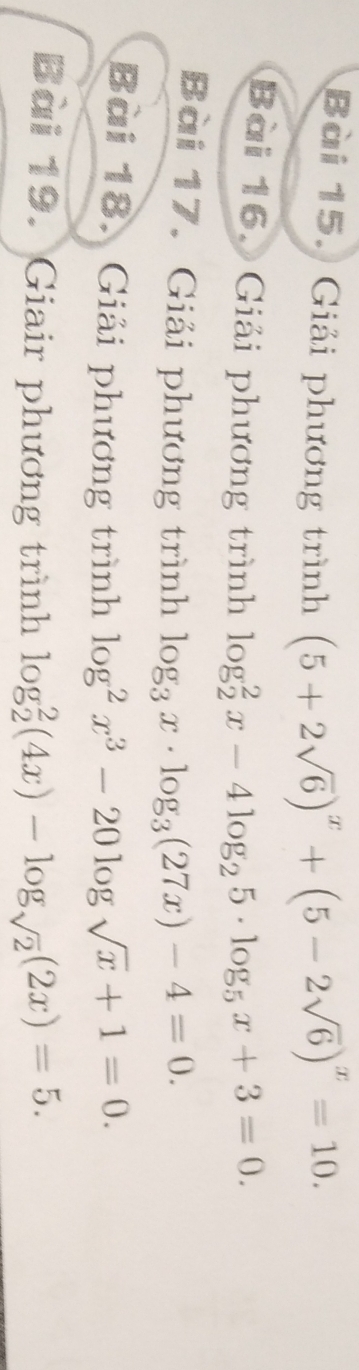 Bài 15. Giải phương trình (5 + 2√6)^x + (5 − 2√6)^x = 10.
Bài 16. Giải phương trình log₂² x − 4 log₂ 5 · log₅ x + 3 = 0.
Bài 17. Giải phương trình log₃ x · log₃(27x) − 4 = 0.
Bài 18. Giải phương trình log² x³ − 20 log √x + 1 = 0.
Bài 19. Giair phương trình log₂²(4x) − log_√2(2x) = 5.